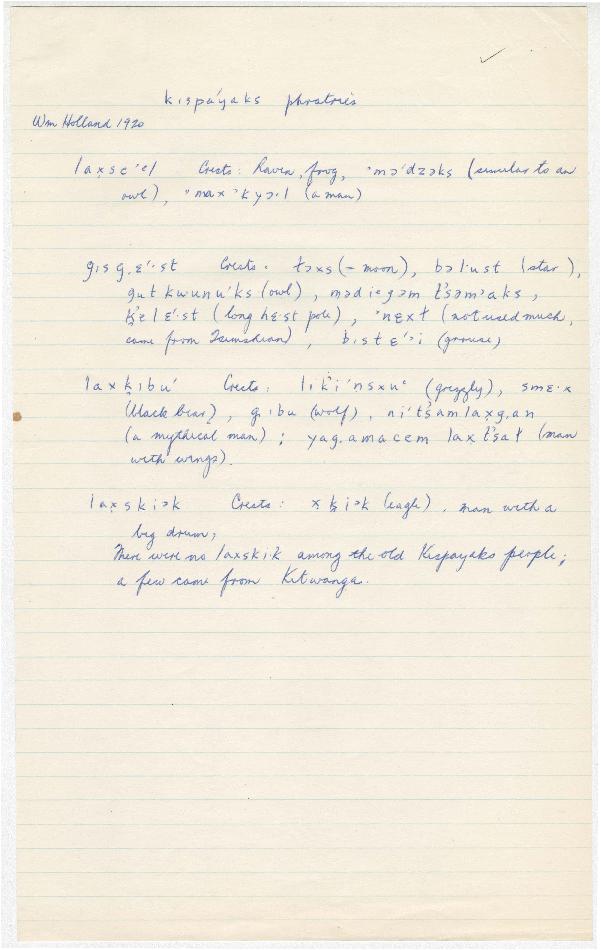 kıspáyaks phratries
Wm Holland 1920
laxsɛ'ɛl Crests: Raven, frog, 'mə'dzəks (similar to an
owl), 'max'kyɔ·l (a man)
gısg.ɛ'·st Crests: łɔxs (- moon), bəl·ust (star),
gutkwunu'ks (owl), mədiegəm t̓səm'aks,
k̓ɛlɛ'·st (long hɛst pole), 'nɛxł (not used much,
came from Tsimshian), bıstɛ'·i (grouse)
laxk̭ıbu' Crests: lık̓i'nsxuᵋ (grizzly), smɛ·x
(black bear), g.ıbu (wolf), ni't̓samlaxg.an
(a mythical man); yag.amacem lax t̓sał (man
with wings).
laxskiɔk Crests: xk̭iɔk (eagle), man with a
big drum;
There were no laxski·k among the old Kispayaks people;
a few came from Kitwanga.